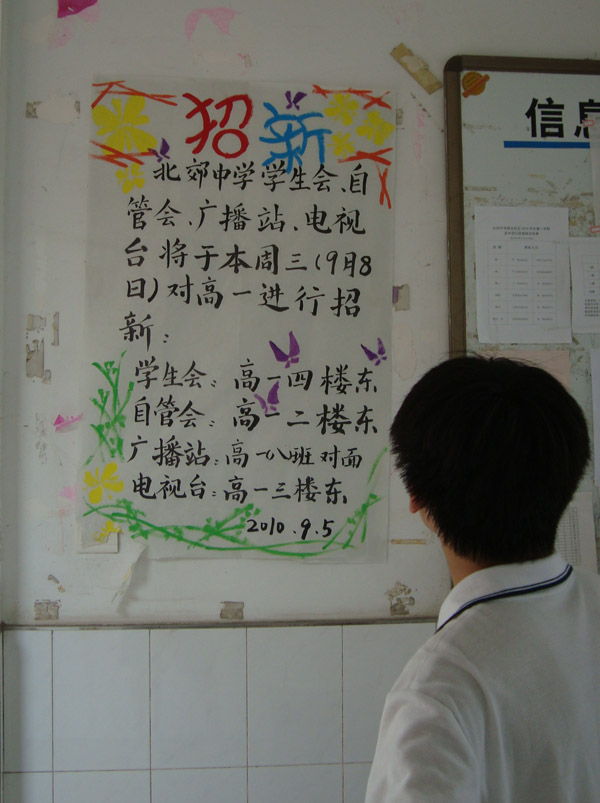 招新
北郊中学学生会、自
管会、广播站、电视
台将于本周三(9月8
日)对高一进行招
新：
学生会：高一四楼东
自管会：高一二楼东
广播站：高一八班对面
电视台：高一三楼东
2010.9.5
信息